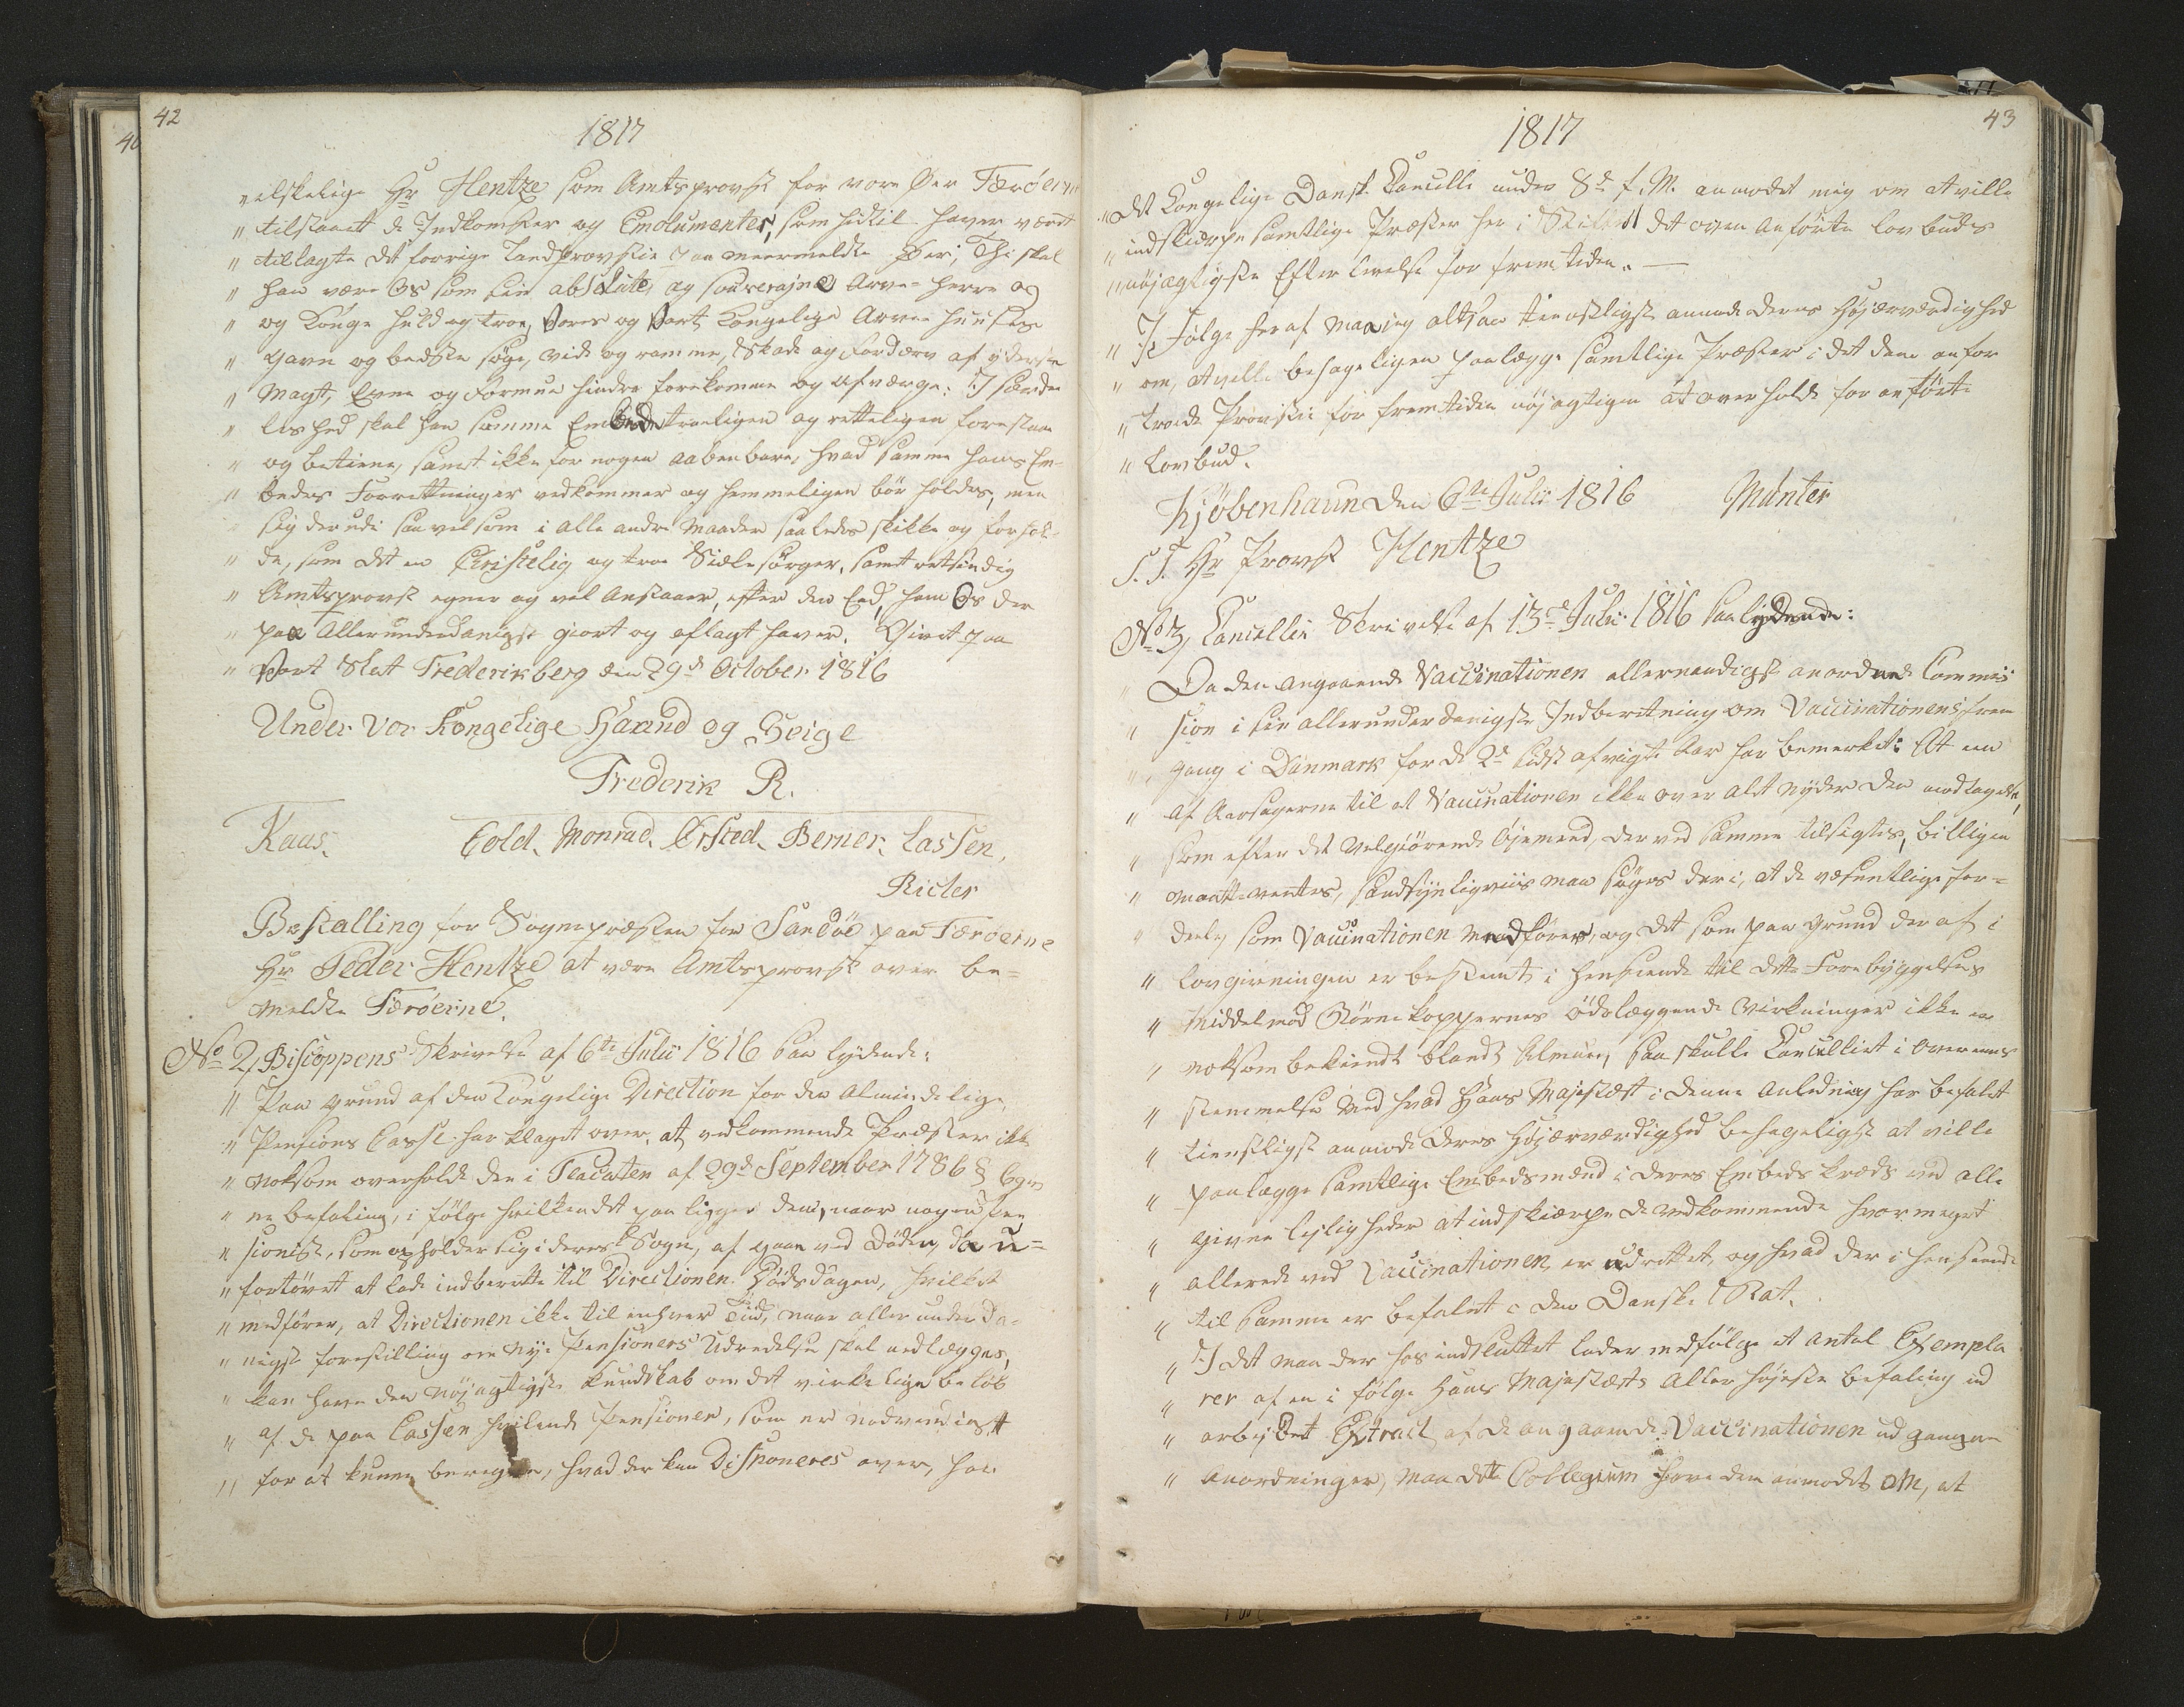 42
1817
„ elskelige Hr Hentze som Amtsprovst for vore Öer Færöerne
„ tilstaaet de Indkomster og Emolumenter, som hidtil haver været
„ tillagte det forrige Landprovstie paa meermeldte Öer; Thi skal
„ han være Os som sin absolute og souveraine Arve-Herre og
„ og Konge huld og troe, Vores og Vort Kongelige Arve Huuses
„ Gavn og bedste söge, vide og ramme, Skade og Fordærv af yderste
„ Magt, Evne og Formue hindre forekomme og afværge: I særde
„ leshed skal han samme Embede troeligen og retteligen forestaae
„ og betiene, samt ikke for nogen aabenbare, hvad samme hans Em-
„ bedes Forretninger vedkommer og hemmeligen bör holdes, men
„ sig derudi saavelsom i alle andre Maader saaledes skikke og forhol-
„ de, som det en Christelig og troe Siælesörger, samt retsindig
„ Amtsprovst egner og vel anstaaer, efter den Eed, han Os der
„ paa Allerunderdanigst giort og aflagt haver. Givet paa
„ Vort Slot Frederiksberg den 29d October 1816
Under Vor Kongelige Haand og Seigl
Frederik R.
Kaas. Cold. Monrad. Örsted. Berner. Lassen.
Ricter
Bestalling for Sognepræsten for Sandöe paa Færöerne
Hr Peder Hentze at være Amtsprovst over be-
meldte Færöerne.
No 2, Biscoppens Skrivelse af 6te Julii 1816 saa lydende:
„ Paa Grund af den Kongelige Direction for den Almindelige
„ Pensions Casse har klaget over, at vedkommende Præster ikke
„ noksom overholde den i Placaten af 29d September 1786 § 6 giv
„ ne befaling, i fölge hvilken det paaligger dem, naar nogen Pen
„ sionist, som opholder sig i deres Sogn, af gaaer ved Döden, da u-
„ fortövet at lade indberette til Directionen Dödsdagen, hvilket
„ medförer, at Directionen ikke til enhver Tid, naar allerunderda-
„ nigst forestilling om nye Pensioners Udredelse skal nedlægges,
„ kan have den nöjagtigste kundskab om det virkelige belöb
„ af de paa Cassen hvilende Pensioner, som er nödvendigt
„ for at kunne beregne, hvad der kan Disponeres over, har
43
1817
„ det Kongelige Danske Cancelli under 8d f. M. anmodet mig om at ville
„ indskiærpe samtlige Præster her i Stiftet det oven anförte lovbuds
„ nöjagtigste Efterlevelse for fremtiden. —
„ I Fölge heraf maa jeg altsaa tienstligst anmode Deres Höjærværdighed
„ om, at ville behageligen paalægge samtlige Præster i det dem anfor
„ troede Provstie for fremtiden nöjagtigen at overholde foranförte
„ Lovbud.
Kjöbenhaun den 6te Julii 1816 Münter
S. T. Hr Provst Hentze
No 3, Cancellie Skrivelse af 13de Julii 1816 saa lydende:
„ Da den angaaende Vaccinationen allernaadigst anordnede Commis
„ sion i sin allerunderdanigste Indberetning om Vaccinationens frem
„ gang i Danmark for de 2de sidst afvigte Aar har bemerket: At een
„ af Aarsagerne til at Vaccinationen ikke over alt nyder den modtagelse,
„ som efter det velgiörende Öjemeed, der ved samme tilsigtes, billigen
„ maatte ventes, sandsynligviis maa söges deri, at de væsentlige for-
„ deele, som Vaccinationen medförer, og det som paa Grund deraf i
„ lovgivningen er bestemt i henseende til dette Forebyggelses
„ middel mod Börnekoppernes ödelæggende virkninger ikke er
„ noksom bekiendt blandt Almuen, saa skulle Cancelliet i overeens
„ stemmelse med hvad Hans Majestæt i denne Anledning har befalet
„ tienstligst anmode Deres Höjærværdighed behageligst at ville
„ paalægge samtlige Embedsmænd i Deres Embeds kreds ved alle
„ givne lejligheder at indskiærpe de vedkommende hvormeget
„ allerede ved Vaccinationen er udrettet, og hvad der i henseende
„ til samme er befalet i den Danske Stat.
„ I det man der hos indsluttet lader medfölge et antal Exempla
„ rer af en i fölge Hans Majestæts Allerhöjeste befaling ud
„ arbejdet Extract af de angaaende Vaccinationen udgangne
„ Anordninger, maa dette Collegium have dem anmodet om, at